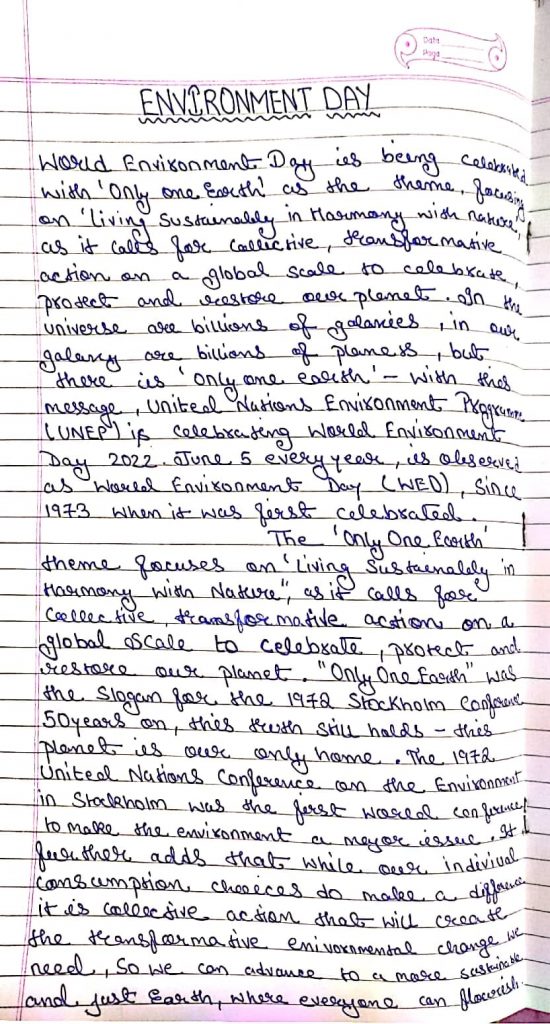 Date
Page
ENVIRONMENT DAY
World Environment Day is being celebrated
with 'Only one Earth' as the theme, focusing
on 'Living Sustainably in Harmony with nature',
as it calls for collective, transformative
action on a global scale to celebrate,
protect and restore our planet. In the
universe are billions of galaxies, in our
galaxy are billions of planess, but
there is 'Only one earth' - with this
message, United Nations Environment Programme
(UNEP) is celebrating World Environment
Day 2022. June 5 every year, is observed
as World Environment Day (WED), since
1973 when it was first celebrated.
The 'Only One Earth'
theme focuses on 'Living Sustainably in
Harmony with Nature", as it calls for
Collective, transformative action on a
global scale to celebrate, protect and
restore our planet. "Only One Earth" was
the Slogan for the 1972 Stockholm Conference
50 years on, this truth still holds - this
planet is our only home. The 1972
United Nations Conference on the Environment
in Stockholm was the first world conference
to make the environment a mejor issue. It
further adds that while our indivival
consumption choices do make a difference
it is collective action that will create
the transformative enivornmental change we
need, So we can advance to a more sustainable
and just Earth, where everyone can flourish.